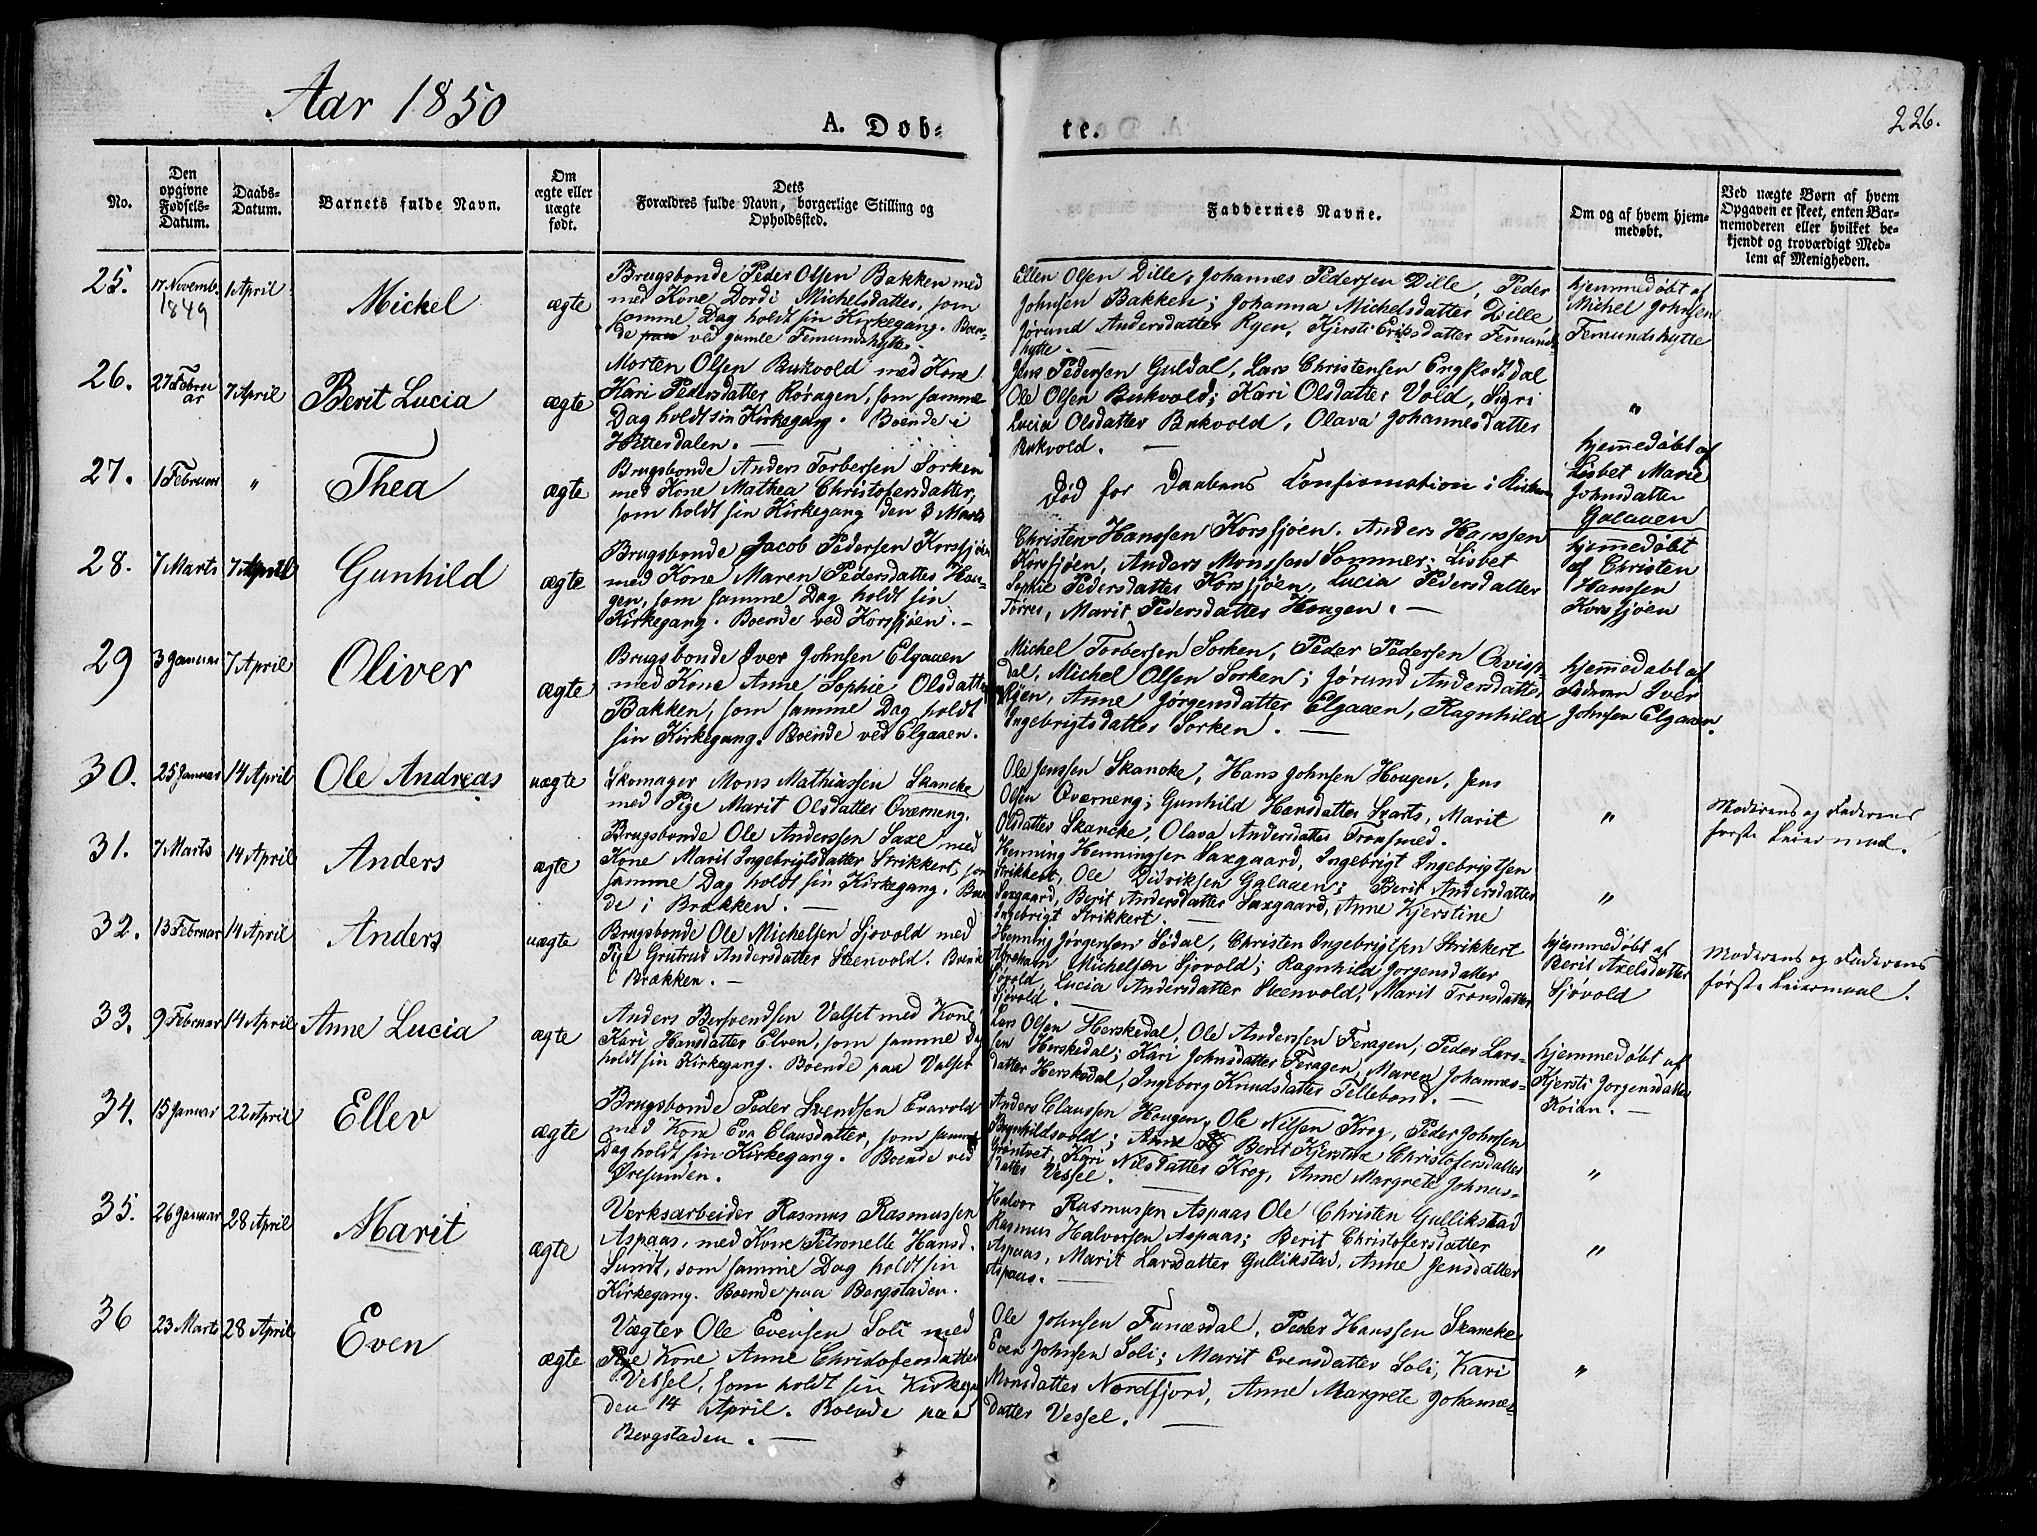 Aar 1850
A. Døb-
te.
226.
No.
Den opgivne Fødsels-Datum.
Daabs-Datum.
Barnets fulde Navn.
Om ægte eller uægte født.
Dets Forældres fulde Navn, borgerlige Stilling og Opholdssted.
Faddernes Navne.
Om og af hvem hjemmedøbt.
Ved uægte Børn af hvem
Opgaven er skeet, enten Bar-
nemoderen eller hvilket be-
kjendt og troværdigt Med-
lem af Menigheden.
25.
17 Novemb.
1849
1 April
Mickel
ægte
Brugsbonde Peder Olsen Bakken med
med Kone Dordi Michelsdatter, som
samme Dag holdt sin Kirkegang. Boen-
de paa ved gamle Femunshytte.
Ellen Olsen Dille, Johannes Pedersen Dille, Peder
Johnsen Bakken; Johanna Michelsdatter Dille
Jørund Andersdatter Ryen, Kjersti Eriksdatter Femunds-
hytte.
hjemmedøbt af
Michel Johnsen
Femundshytte
26.
27 Febru
ar
7 April
Berit Lucia
ægte
Morten Olsen Bukvold med Kone
Kari Pedersdatter Røragen, som samme
Dag holdt sin Kirkegang. Boende i
Hitterdalen.
Jens Pedersen Guldal, Lars Christensen Engslodtdal
Ole Olsen Bukvold; Kari Olsdatter Vold, Sigri
Lucia Olsdatter Bukvold, Olava Johannesdatter
Bukvold.
"
27.
1 Februar
"
Thea
ægte
Brugsbonde Anders Torbersen Sorken
med Kone Mathea Christofersdatter,
som holdt sin Kirkegang den 3 Marts
Død før Daabens Confirmation i Kirken
hjemedøbt af
Lisbet Marie
Johnsdatter
Galaaen
28.
7 Marts
7 April
Gunhild
ægte
Brugsbonde Jacob Pedersen Korssjøen
med Kone Maren Pedersdatter Hau-
gen, som samme Dag holdt sin
Kirkegang. Boende ved Korssjøen.
Christen Hanssen Korssjøen, Anders Hanssen
Korssjøen, Anders Monssen Sommer; Lisbet
Sophie Pedersdatter Korssjøen, Lucia Pedersdatter
Torres, Marit Pedersdatter Hougen.
hjemedøbt
af Christen
Hanssen
Korssjøen
29
3 Januar
7 April
Oliver
ægte
Brugsbonde Iver Johnsen Elgaaen
med Kone Anne Sophie Olsdatter
Bakken, som samme Dag holdt
sin Kirkegang. Boende ved Elgaaen.
Michel Torbersen Sorken, Peder Pedersen Qvisp-
dal, Michel Olsen Sorken; Jørund Andersdatter
Røen, Anne Jørgensdatter Elgaaen, Ragnhild
Ingebrigtsdatter Sorken.
hjemedøbt af
Faderen Iver
Johnsen Elgaaen.
30.
25 Januar
14 April
Ole Andreas
uægte
Skomager Mons Mathiassen Skancke
med Pige Marit Olsdatter Overneng.
Ole Jenssen Skancke, Hans Johnsen Hougen, Jens
Olsen Overneng; Gunhild Hansdatter Skarts, Marit
Olsdatter Skancke, Olava Andersdatter Tronsmed.
"
Moderens og Faderens
første Leiermaal.
31.
7 Marts
14 April
Anders
ægte
Brugsbonde Ole Anderssen Saxe med
Kone Marit Ingebrigtsdatter Strikkert, som
samme Dag holdt sin Kirkegang. Boen
de i Brækken.
Henning Henningsen Saxgaard, Ingebrigt Ingebrigtsen
Strikkert, Ole Didriksen Galaaen; Berit Andersdatter
Saxgaard, Berit Andersdatter Saxgaard, Anne Kjerstine
Ingebrigt Strikkert.
"
32.
13 Februar
14 April
Anders
uægte
Brugsbonde Ole Michelsen Sjøvold med
Pige Grutrud Andersdatter Steenvold. Boende
i Brækken.
Henning Jørgensen Sødal, Christen Ingebrigtsen Strikkert
Abraham Michelsen Sjøvold; Ragnhild Jørgensdatter
Sjøvold, Lucia Andersdatter Steenvold, Marit Tronsdatter
Sjøvold.
hjemmedøbt af
Berit Axelsdatter
Sjøvold
Moderens og Faderens
første Leiermaal.
33.
9 Februar
14 April
Anne Lucia
ægte
Anders Bersvendsen Valset med Kone
Kari Hansdatter Elven, som samme Dag
holdt sin Kirkegang. Boende paa Valset
Lars Olsen Herskedal, Ole Anderssen Feragen, Peder Lars-
sen Herskedal; Kari Johnsdatter Feragen, Maren Johannes-
datter Herskedal, Ingeborg Knudsdatter Tellebond.
hjemmedøbt af
Kjersti Jørgensdatter
Røian.
34.
15 Januar
22 April
Ellev
ægte
Brugsbonde Peder Svendsen Evavold
med Kone Eva Clausdatter, som samme
Dag holdt sin Kirkegang. Boende ved
Øresunden.
Anders Claussen Hougen, Ole Nilsen Krog, Peder Johnsen
Bagnhildsvold; Anne Berit Kjerstine Christofersdatter
Grøntvet, Kari Nilsdatter Krog, Anne Margrete Johnes-
datter Vessel.
"
35.
26 Januar
28 April
Marit
ægte
Verksarbeider Rasmus Rasmussen
Aspaas, med Kone Petronelle Hansd.
Sundt, som samme Dag holdt sin
Kirkegang. Boende paa Bergstaden.
Halvor Rasmussen Aspaas Ole Christen Gullikstad
Rasmus Halvorsen Aspaas; Berit Christofersdatter
Aspaas, Marit Larsdatter Gullikstad, Anne Jensdatter
Aspaas.
"
36
23 Marts
28 April
Even
ægte
Vægter Ole Evensen Soli med
Pige Kone Anne Christofersdatter
Vessel, som holdt sin Kirkegang
den 14 April. Boende paa
Bergstaden.
Ole Johnsen Funæsdal, Peder Hanssen Skancke
Even Johnsen Soli; Marit Evensdatter Soli, Kari
Monsdatter Nordfjord, Anne Margrete Johannes-
datter Vessel.
"